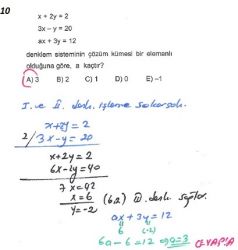 10
x + 2y = 2
3x – y = 20
ax + 3y = 12
denklem sisteminin çözüm kümesi bir elemanlı
olduğuna göre, a kaçtır?
A) 3 B) 2 C) 1 D) 0 E) –1
I. ve II. denk. işleme sokarsak.
x+2y = 2
2/ 3x-y = 20
x+2y = 2
6x-2y = 40
7x = 42
x = 6 (6a) III. denk.
y = -2 ax + 3y = 12
6 (-2)
6a - 6 = 12 a = 3 CEVAP A